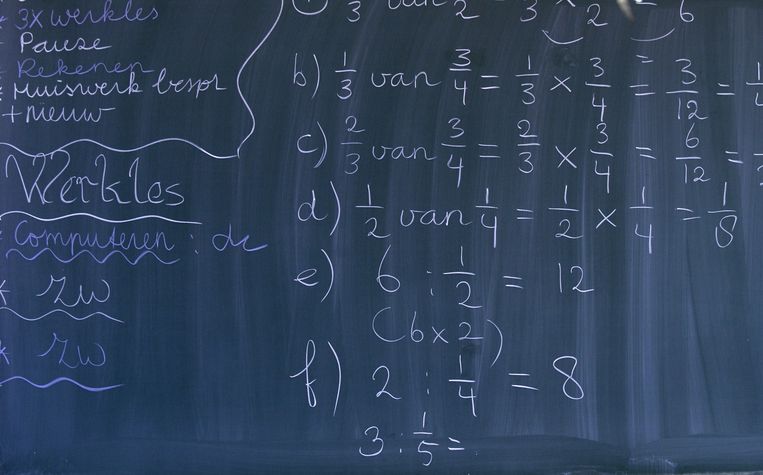 3x werkles
Pause
Rekenen
Huiswerk bespr
+ nieuw
Werkles
Computeren : de
* zw
* zw
3 van 2 = 3 x 2 = 6
b) 1/3 van 3/4 = 1/3 x 3/4 = 3/12 = 1/4
c) 2/3 van 3/4 = 2/3 x 3/4 = 6/12 =
d) 1/2 van 1/4 = 1/2 x 1/4 = 1/8
e) 6 : 1/2 = 12
(6 x 2)
f) 2 : 1/4 = 8
3 : 1/5 =